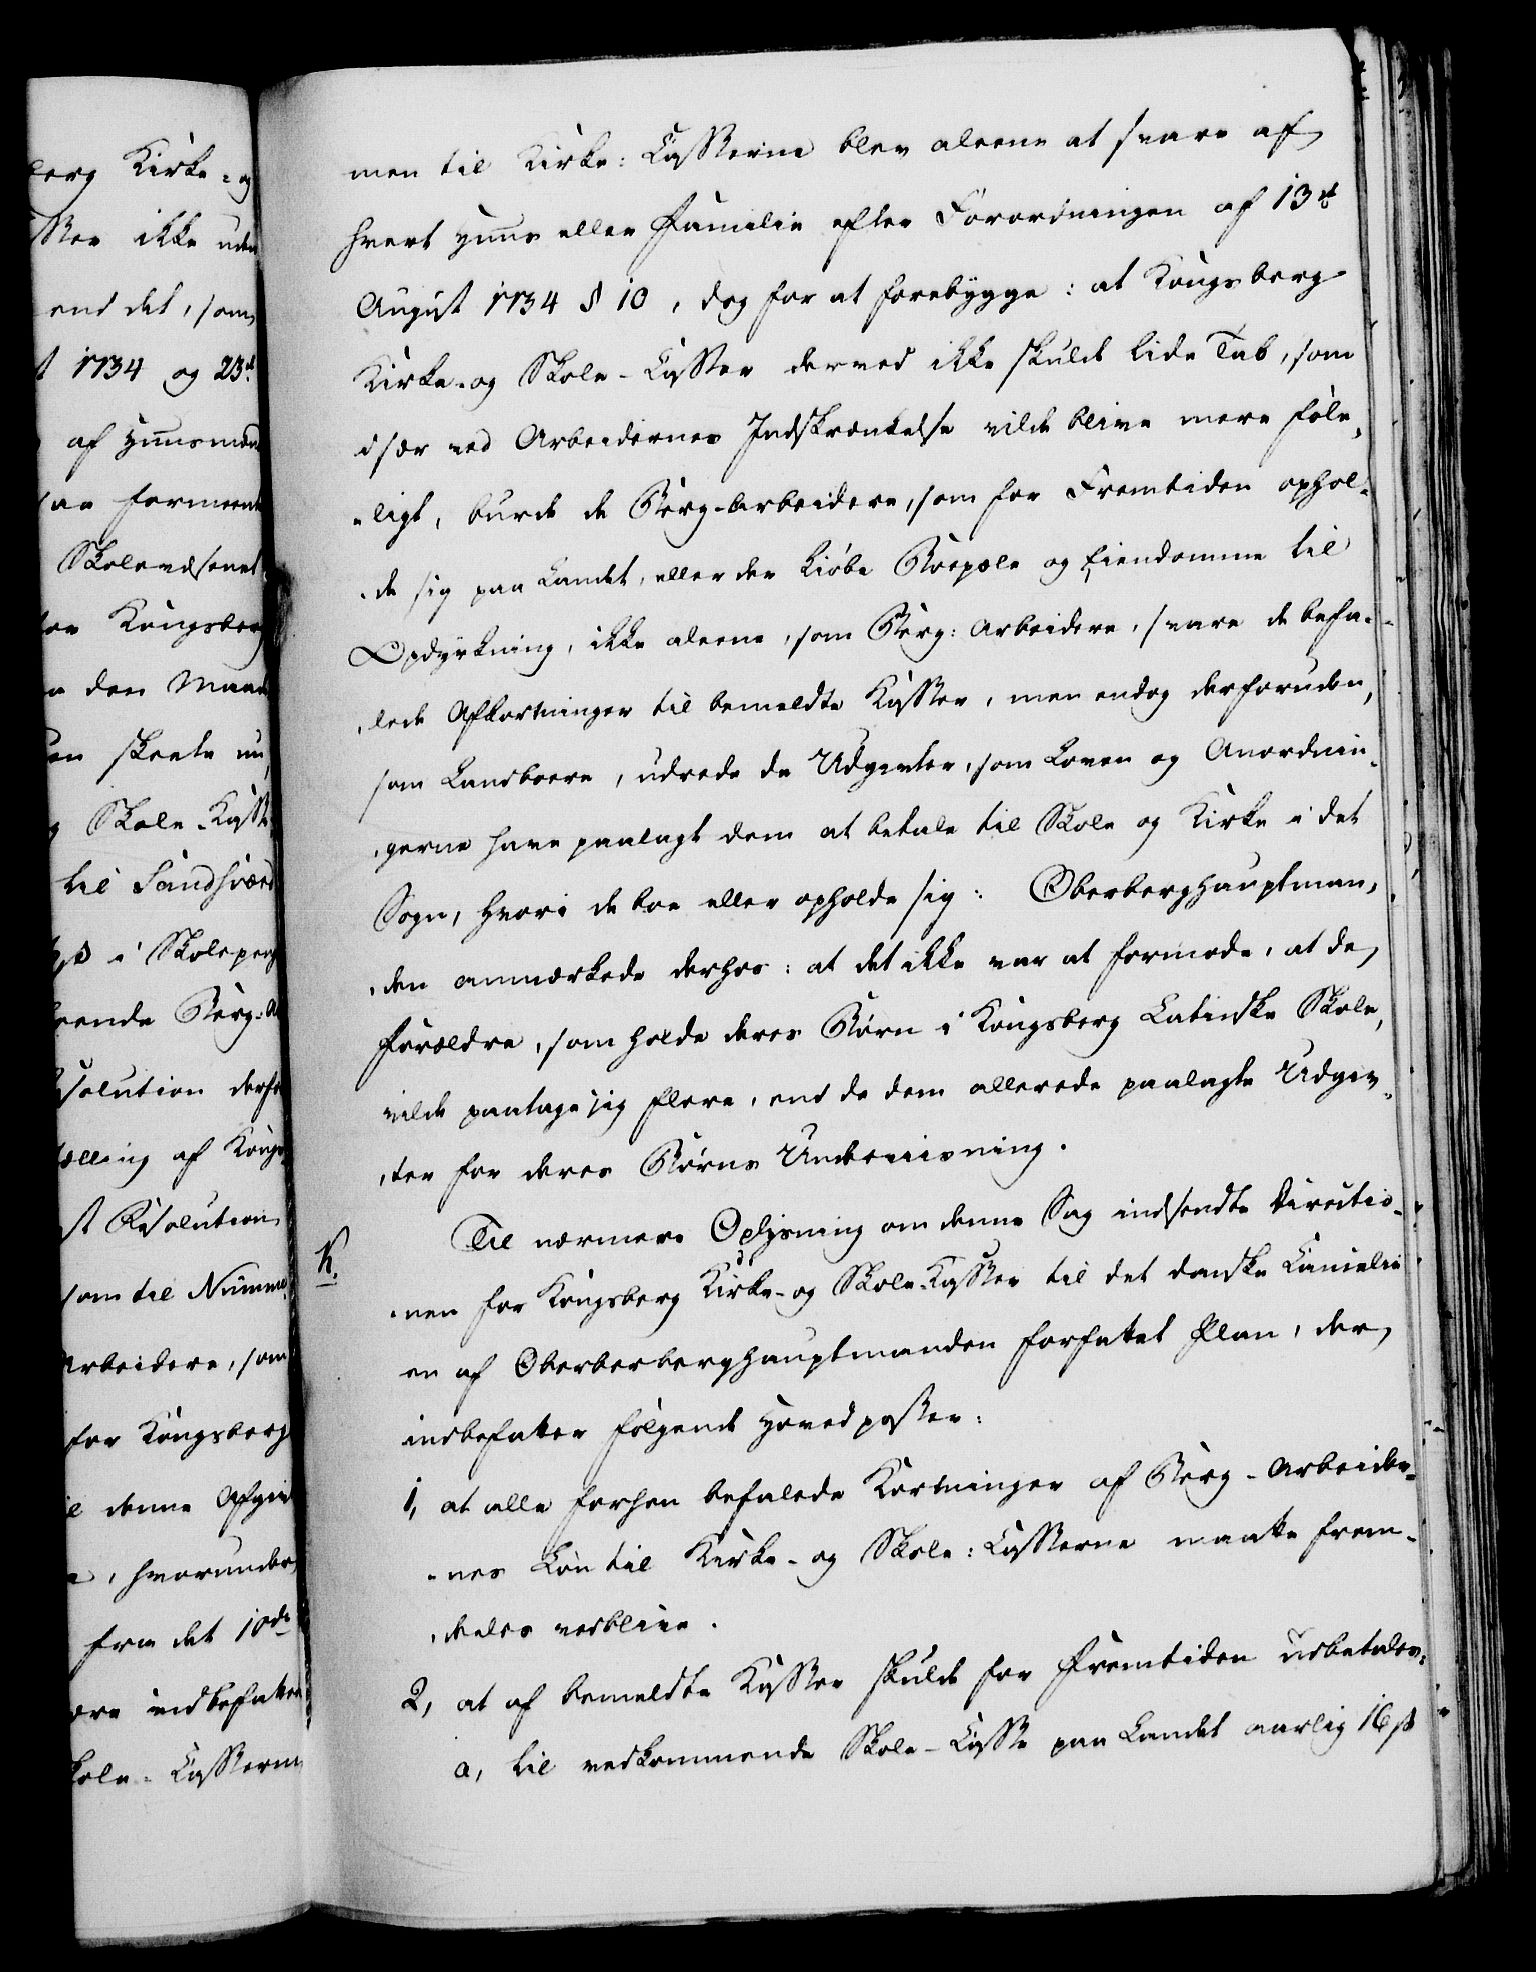 berg Kirke- og
sser ikke uden
end det, som
1734 og 23de
af Huusmænd
saa formeent
Skolevæsenet
for Kongsberg
den Maade
skeete nu,
Skole-Kasse
til Sandsværd
i Skolepenge
boende Berg-A
solution derfo
ælling af Kongs
st Resolution
som til Numme
Arbeidere, som
for Kongsberg
denne Afgivt
, hvorunder
fra det 10de
være indbefattet
Skole-Casserne
men til Kirke-Casserne blev aleene at svare af
hvert Huus eller Familie efter Forordningen af 13de
August 1734 § 10, dog for at forebygge: at Kongsberg
Kirke- og Skole-Casser derved ikke skulde lide Tab, som
især ved Arbeidernes Indskrænkelse vilde blive mere føle-
-ligt, burde de Berg-Arbeidere, som for Fremtiden ophol-
-de sig paa Landet, eller der kiøbe Boepæle og Eiendomme til
Opdyrkning, ikke aleene, som Berg-Arbeidere, svare de befa-
-lede Afkortninger til bemeldte Kasser, men endog derforuden,
som Landboere, udrede de Udgivter, som Loven og Anordnin-
-gerne have paalagt dem at betale til Skole og Kirke i det
Sogn, hvori de boe eller opholde sig: Oberberghauptman-
-den anmærkede derhos: at det ikke var at formode, at de
Forældre, som holde deres Børn i Kongsberg Latinske Skole,
vilde paatage sig flere, end de dem allerede paalagte Udgiv-
-ter for deres Børns Underviisning.
K. Til nærmere Oplysning om denne Sag indsendte Directio-
-nen for Kongsberg Kirke- og Skole-Kasser til det danske Cancelie
en af Oberberberghauptmanden forfattet Plan, der
indbefatter følgende Hovedposter:
1, at alle forhen befalede Kortninger af Berg-Arbeider-
-nes Løn til Kirke- og Skole-Casserne maatte frem-
-deeles vedblive.
2, at af bemeldte Kasser skulde for Fremtiden udbetales:
a, til vedkommende Skole-Casse paa Landet aarlig 16 ß